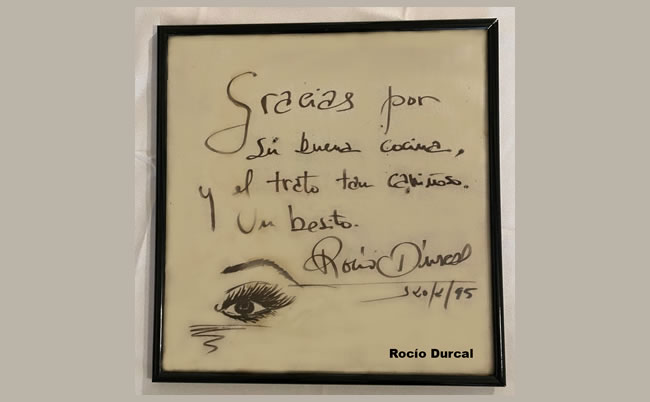 Gracias por
su buena cocina,
y el trato tan cariñoso.
Un besito.
Rocío Dúrcal
/95
Rocío Durcal